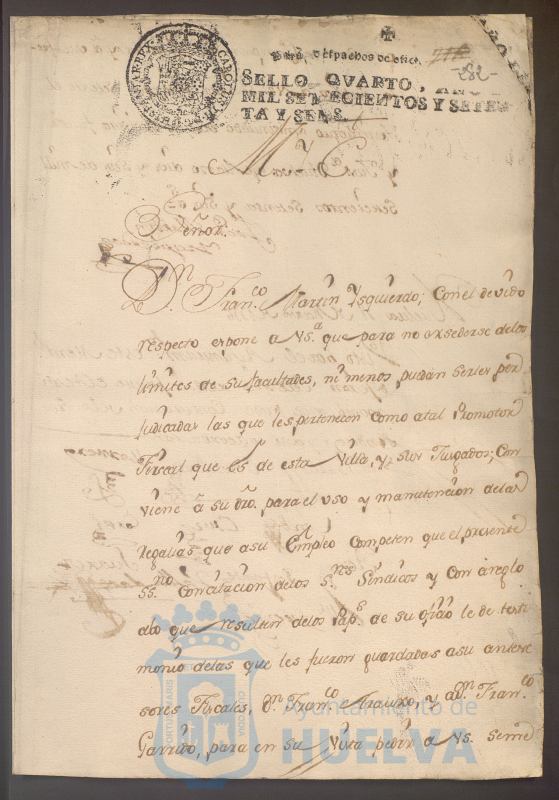 Para despachos de oficio
282
SELLO QVARTO, AÑO
MIL SETECIENTOS Y SETEN
TA Y SEIS.
M Y C
Señor.
Dn. Franco. Martin Ysquierdo; Con el devido
respecto expone a VSa. que para no exsederse delos
limites de su facultades, ni menos puedan serles per
judicadas las que les pertenecen como atal Promotor
Fiscal que es de esta Villa, y sus Jusgados; Con
viene a su dro. para el uso y manutencion delas
Regalias que asu Empleo Competen que el presente
SSno. Con citacion delos Sres. Sindicos y Con areglo
alo que resulten delos Pap.s de su ofisio le de testi
monio delas que les fueron guardadas asu antese
sores Fiscales, Dn. Franco. Arauxo, y a Dn. Franco.
Garrido, para en su Vista pedir a VS. seme
Ayuntamiento de
HUELVA